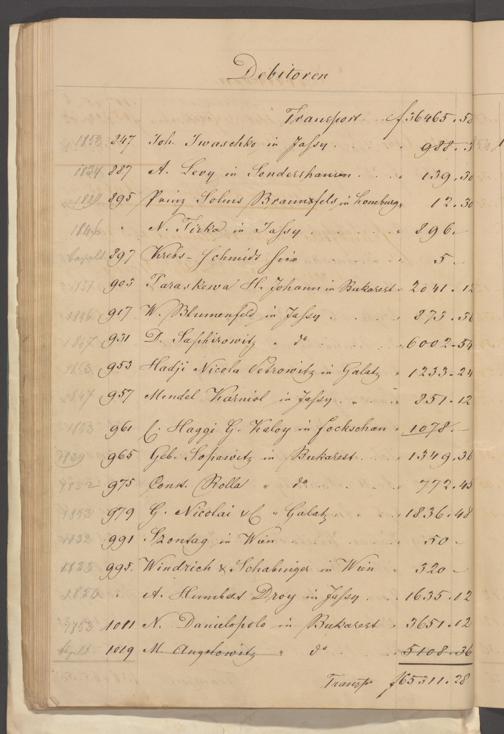 Debitoren
Transport f 36465.50
1853 847 Joh. Iwaschko in Jassy 988.3
1824 887 A. Levy in Sondershausen 139.30
895 Prinz Solms Braunfels in Homburg 12.30
" N. Tirka in Jassy 896.–
897 Krebs-Schmidt hier 5.–
903 Paraskewa H. Johann in Bukarest 2041.12
917 W. Blumenfeld in Jassy 873.36
931 D. Saphirowitz " do 6002.54
953 Hadji Nicola Petrowitz in Galatz 1233.24
957 Mendel Karniol in Jassy 851.12
961 C. Haggi G. Kaloy in Fockschan 1078.–
965 Geb. Sopawitz in Bukarest 1549.36
975 Const. Rolla " do 772.45
1853 979 G. Nicolai & C " Galatz 1836.48
1832 991 Szontag in Wien 50.–
995 Windrich & Schabinger in Wien 320.–
1850 " A. Humbert Droy in Jassy 1635.12
1853 1011 N. Danielopolo in Bukarest 3651.12
1019 M. Angelowitz " do 5108.36
Transp. f 65311.28